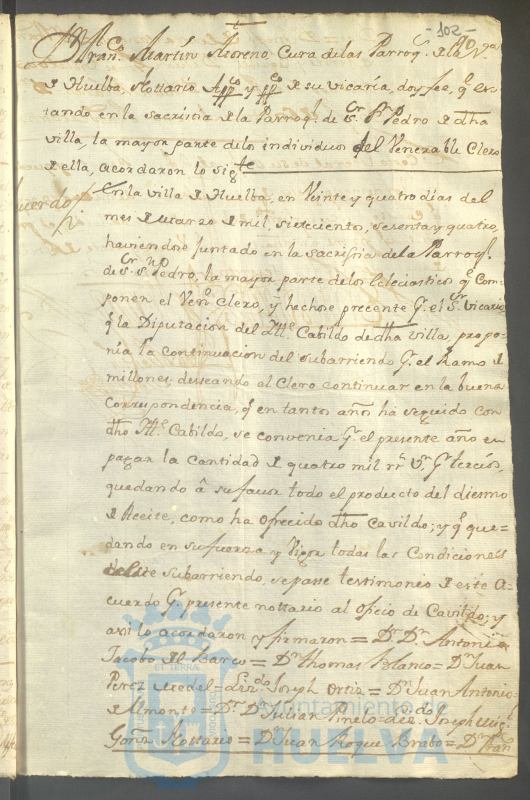 -102-
90
Dn. Franco. Martín Moreno Cura delas Parroqs. de la Va.
de Huelba, Nottario Appco. y ppco. de su vicaría, doy fee, qe. es-
tando en la sacristia de la Parroql. de Sor. Sn. Pedro de dha
villa, la mayor parte delos individuos del Venerable Clero
de ella, acordaron lo sigte.
Acuerdo
En la villa de Huelba, en Veinte y quatro dias del
mes de Marzo de mil, setecientos, sesenta, y quatro,
haviendose juntado en la sacristia dela Parroql.
de Sor. Sn. Pedro, la mayor parte delos Eclesiasticos qe. com-
ponen el Vene. Clero, y hechose precente pr. el Sor. Vicario
qe. la Diputacion del Ille. Cabildo de dha villa, propo-
nía la continuacion del subarriendo pr. el Ramo de
millones, deseando el Clero continuar en la buena
correspondencia, qe. en tantos años ha seguido con
dho Ille. Cabildo, se convenia pr. el presente año en
pagar la cantidad de quatro mil rs. vn. pr. tercios,
quedando â su favor todo el producto del diesmo
de Aceite, como ha ofrecido dho Cavildo; y qe. que-
dando en su fuerza y vigor todas las Condiciones
de este subarriendo, se passe testimonio de este A-
cuerdo pr. presente nottario al oficio de Cavildo; y
assi lo acordaron y firmaron = Dr. Dn. Antonio
Jacobo del Barco = Dn. Thomas Blanco = Dn. Juan
Perez Medel = Lizdo. Joseph Ortiz = Dn. Juan Antonio
de Almonte = Dr. Dn. Julian Pinelo = Joseph Migl.
Gomz. Nottario = Dn. Juan Roque Brabo = Dn. Fran
Ayuntamiento de
HUELVA